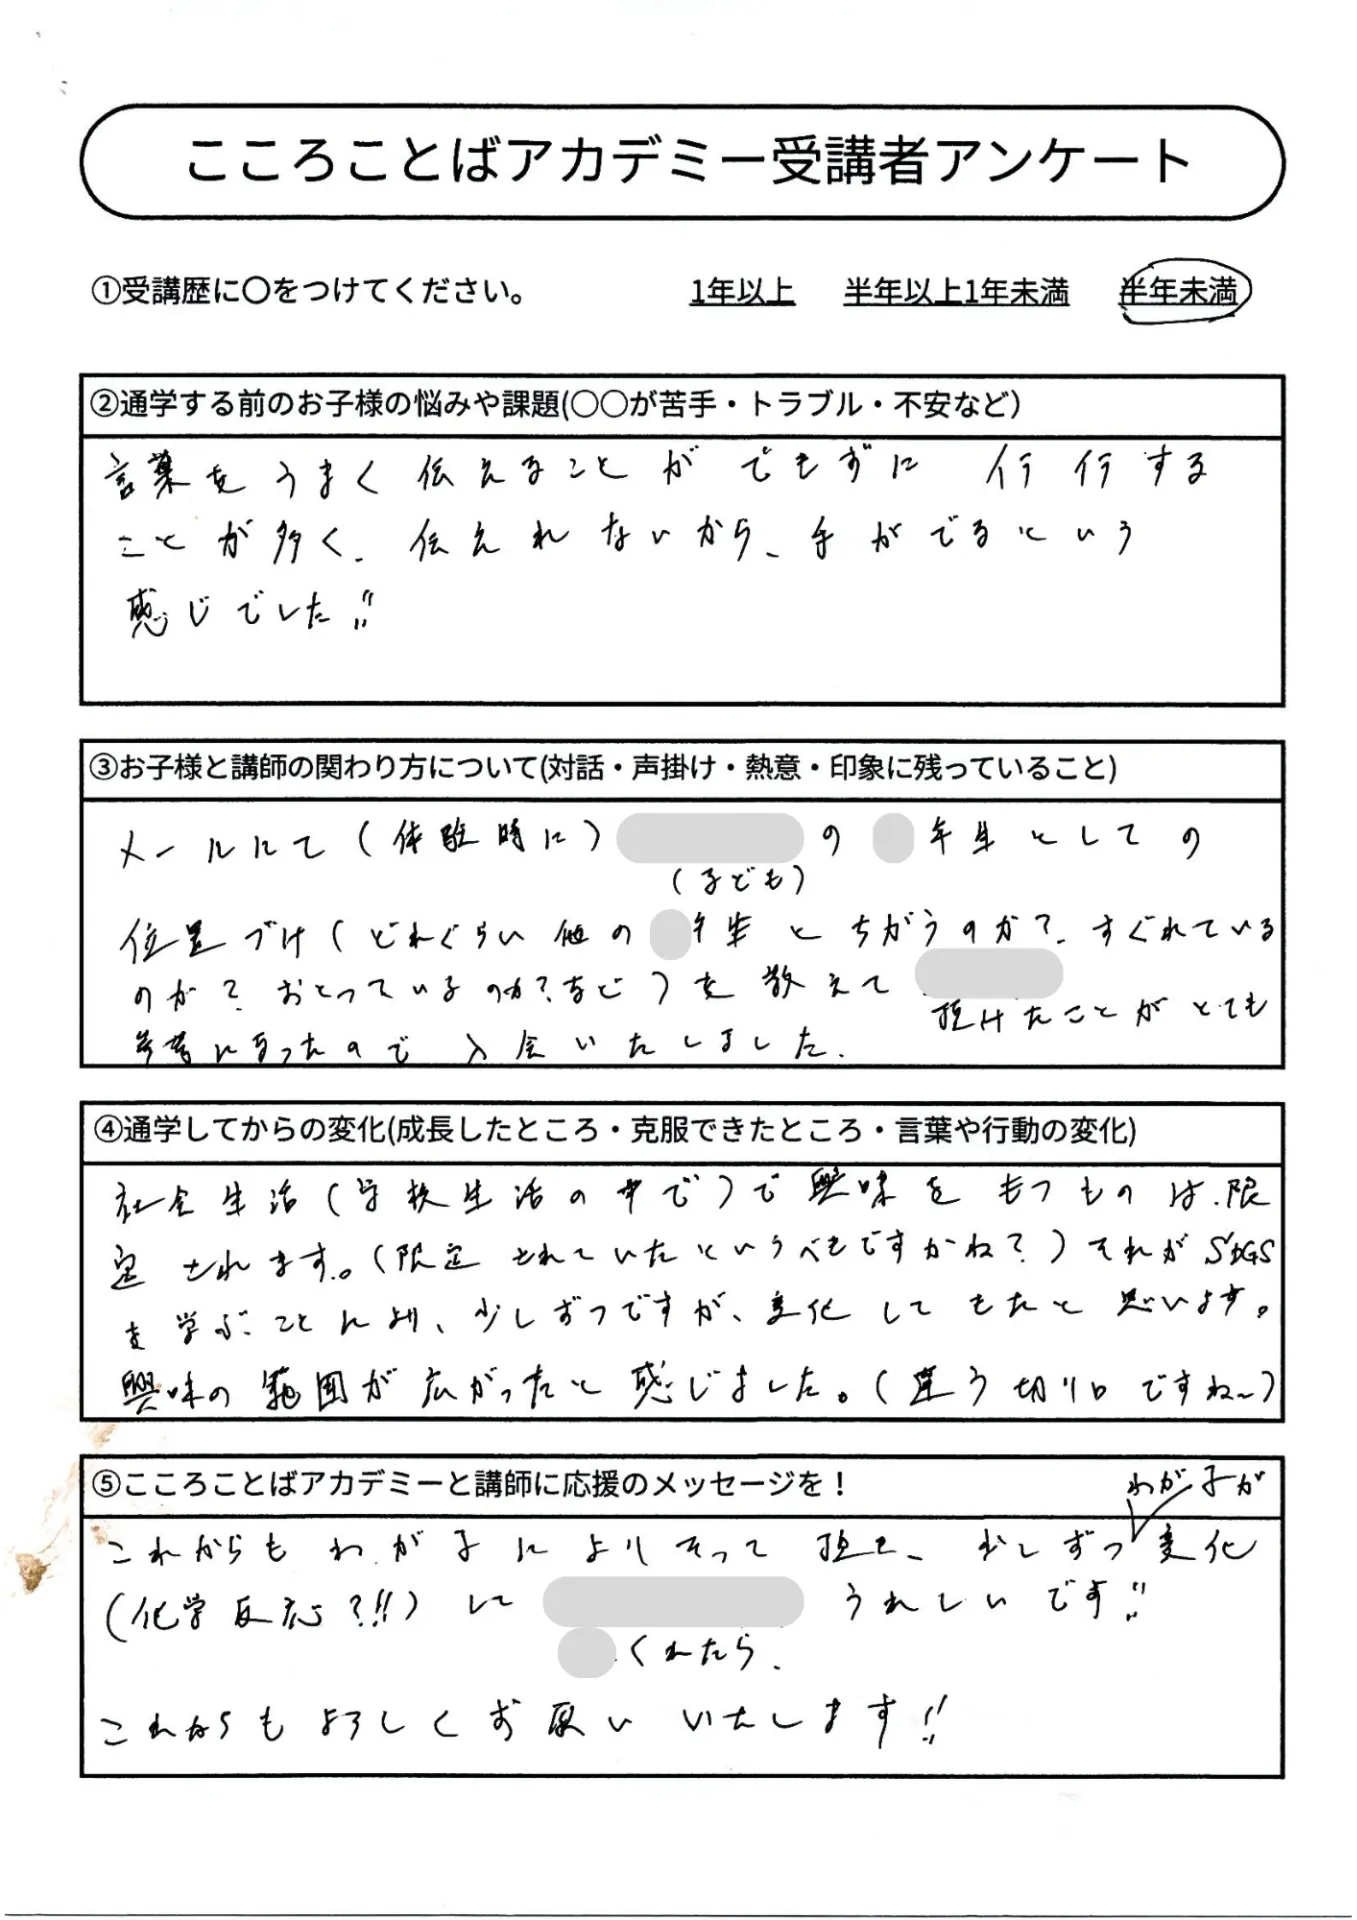 こころことばアカデミー受講者アンケート
①受講歴に〇をつけてください。 1年以上 半年以上1年未満 半年未満
②通学する前のお子様の悩みや課題(〇〇が苦手・トラブル・不安など)
言葉をうまく伝えることができずに 行する
ことが多く、伝えれないから、手がでるという
感じでした!!
③お子様と講師の関わり方について(対話・声掛け・熱意・印象に残っていること)
メールにて(体験時に) の 年生としての
(子ども)
位置づけ(どれぐらい他の 年生とちがうのか?、すぐれている
のか?おとっているのか?など)を教えて
頂けたことがとても
参考になったので入会いたしました.
④通学してからの変化(成長したところ・克服できたところ・言葉や行動の変化)
社会生活(学校生活の中で)で興味をもつものは、限
定されます。(限定されていたというべきですかね?)それがSDGS
を学ぶことにより、少しずつですが、変化してきたと思います。
興味の範囲が広がったと感じました。(違う切り口ですね~)
⑤こころことばアカデミーと講師に応援のメッセージを!
わが子が
これからもわが子によりそって頂き、少しずつ変化
(化学反応?!!)して うれしいです!!
くれたら、
これからもよろしくお願いいたします!!